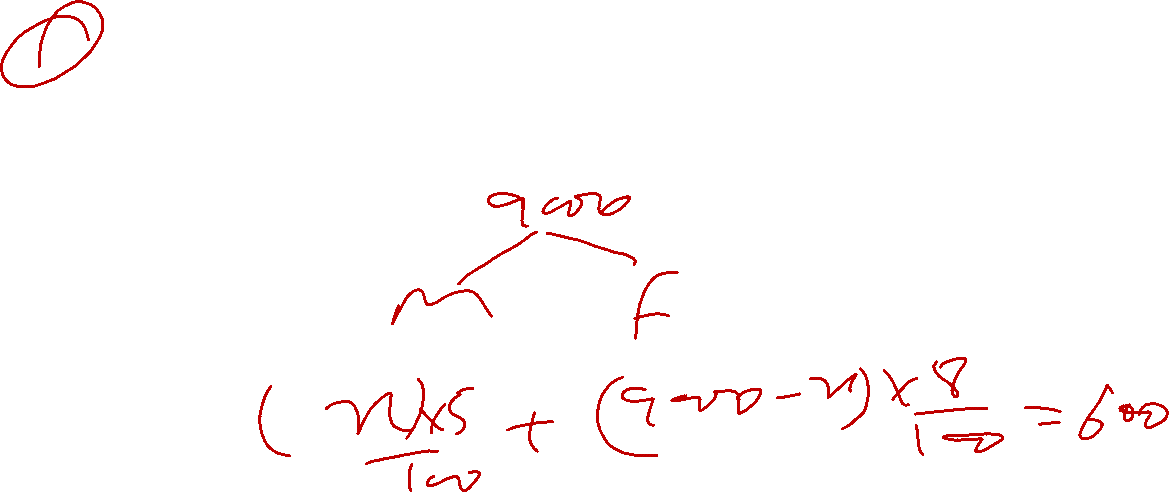 1
9000
M F
(x) × 5/100 + (9000 - x) × 8/100 = 600